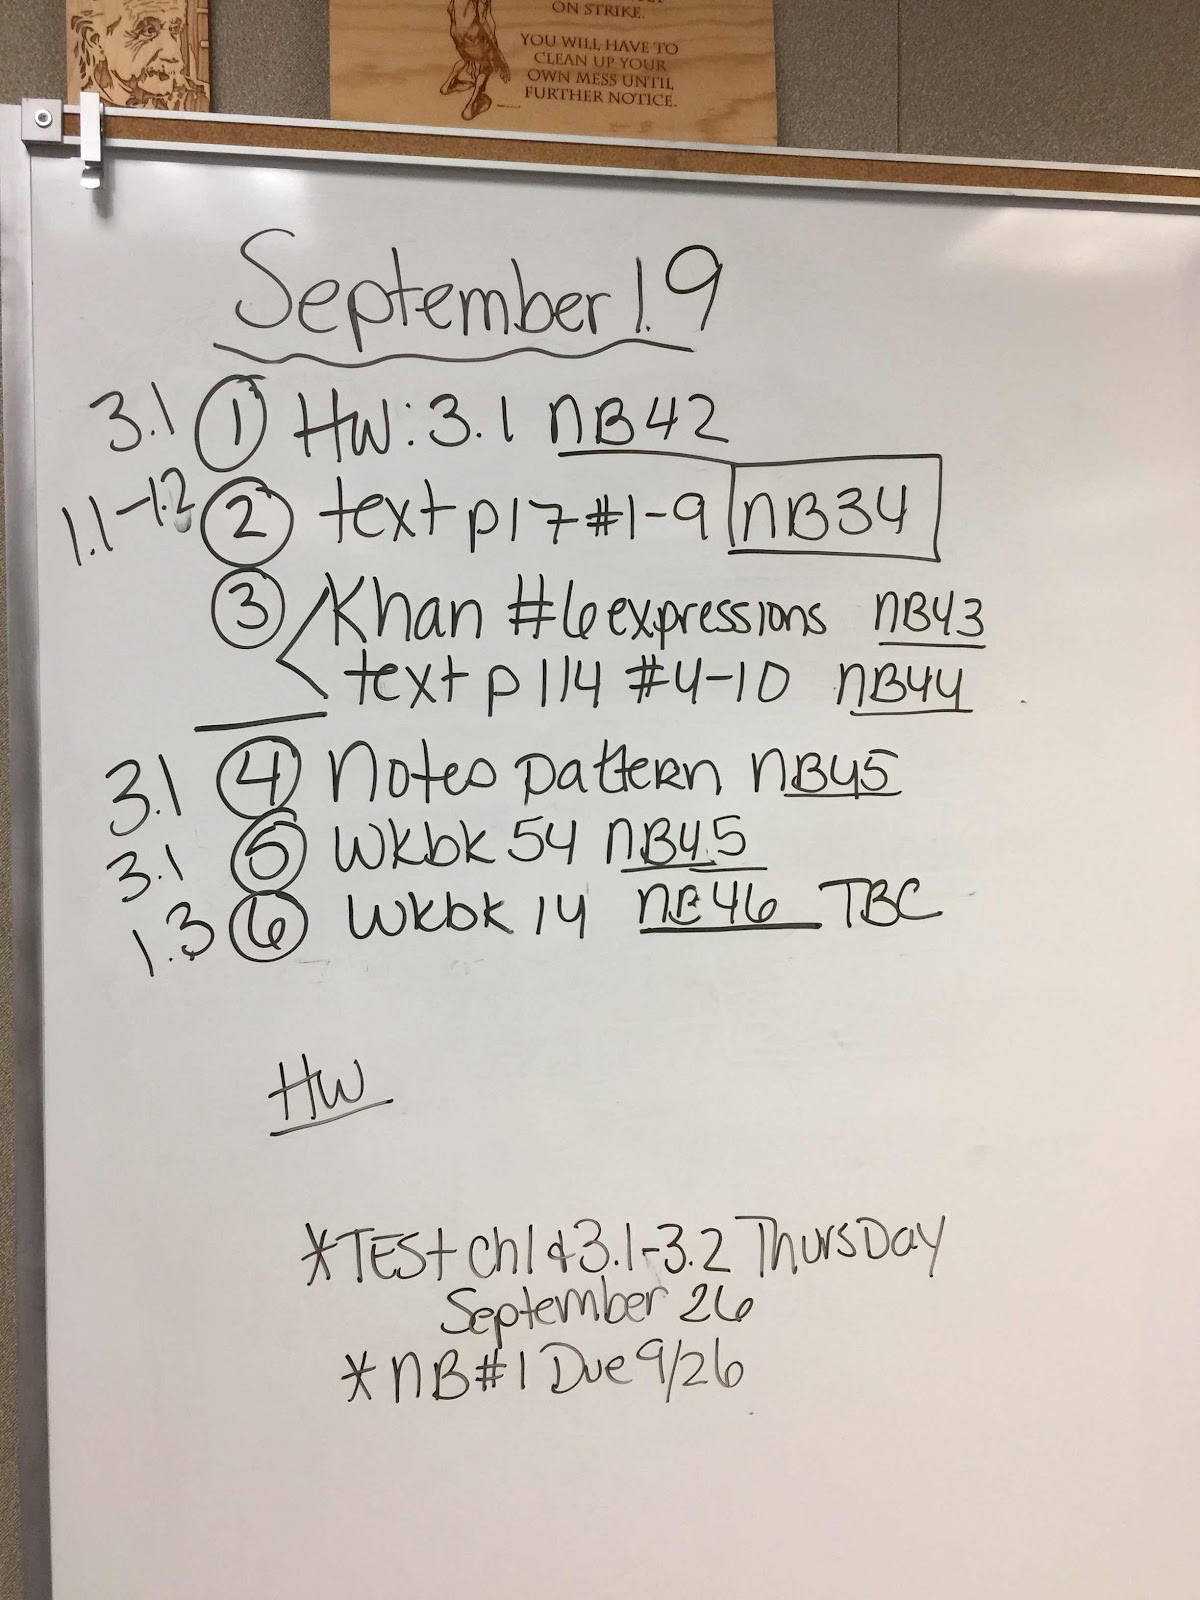 ON STRIKE.
YOU WILL HAVE TO
CLEAN UP YOUR
OWN MESS UNTIL
FURTHER NOTICE.
September 19
3.1 ① HW: 3.1 nB42
1.1-1.2 ② text p17 #1-9 nB34
③ Khan #6 expressions nB43
text p114 #4-10 nB44
3.1 ④ Notes pattern nB45
3.1 ⑤ Wkbk 54 nB45
1.3 ⑥ Wkbk 14 nB46 TBC
HW
*TESt Ch1 & 3.1-3.2 ThursDay
September 26
*nB#1 Due 9/26